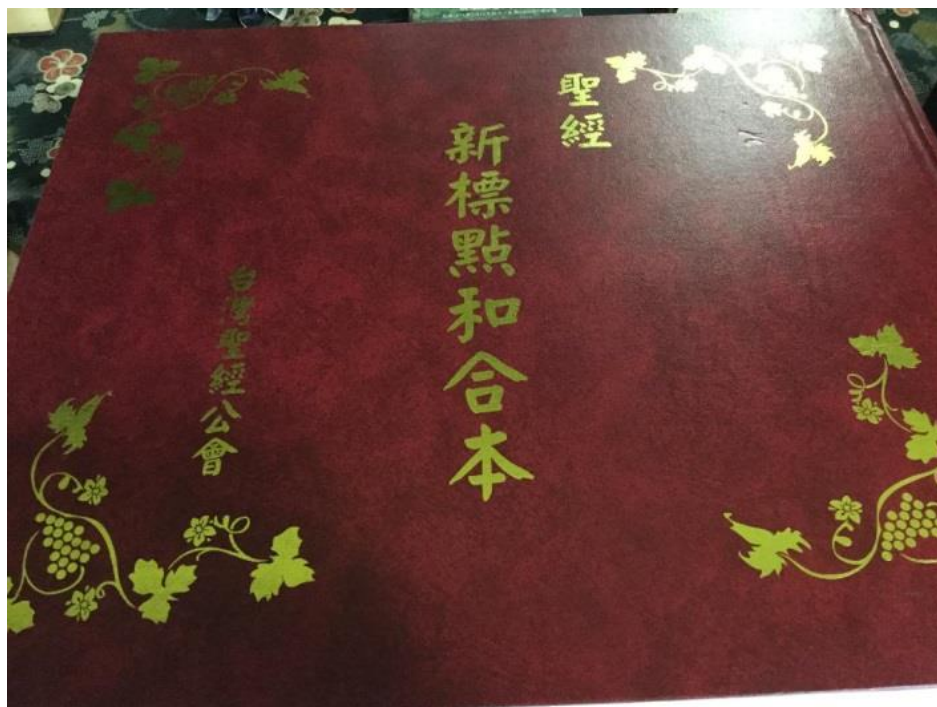 聖經
新標點和合本
台灣聖經公會